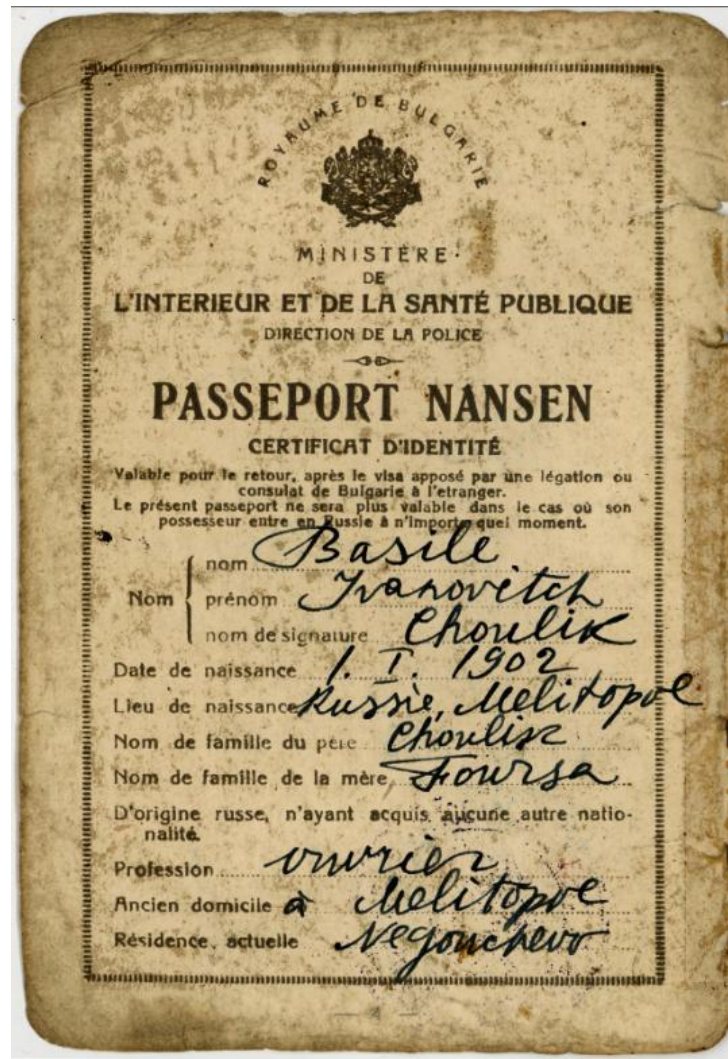 ROYAUME DE BULGARIE
MINISTÈRE
DE
L'INTERIEUR ET DE LA SANTÉ PUBLIQUE
DIRECTION DE LA POLICE
PASSEPORT NANSEN
CERTIFICAT D'IDENTITÉ
Valable pour le retour, après le visa apposé par une légation ou
consulat de Bulgarie à l'etranger.
Le présent passeport ne sera plus valable dans le cas où son
possesseur entre en Russie à n'importe quel moment.
nom Basile
Nom prénom Ivanovitch
nom de signature Choulik
Date de naissance 1. I. 1902
Lieu de naissance Russie, Melitopol
Nom de famille du père Choulik
Nom de famille de la mère Foursa
D'origine russe, n'ayant acquis aucune autre natio-
nalité.
Profession ouvrier
Ancien domicile à Melitopol
Résidence actuelle Negouchevo